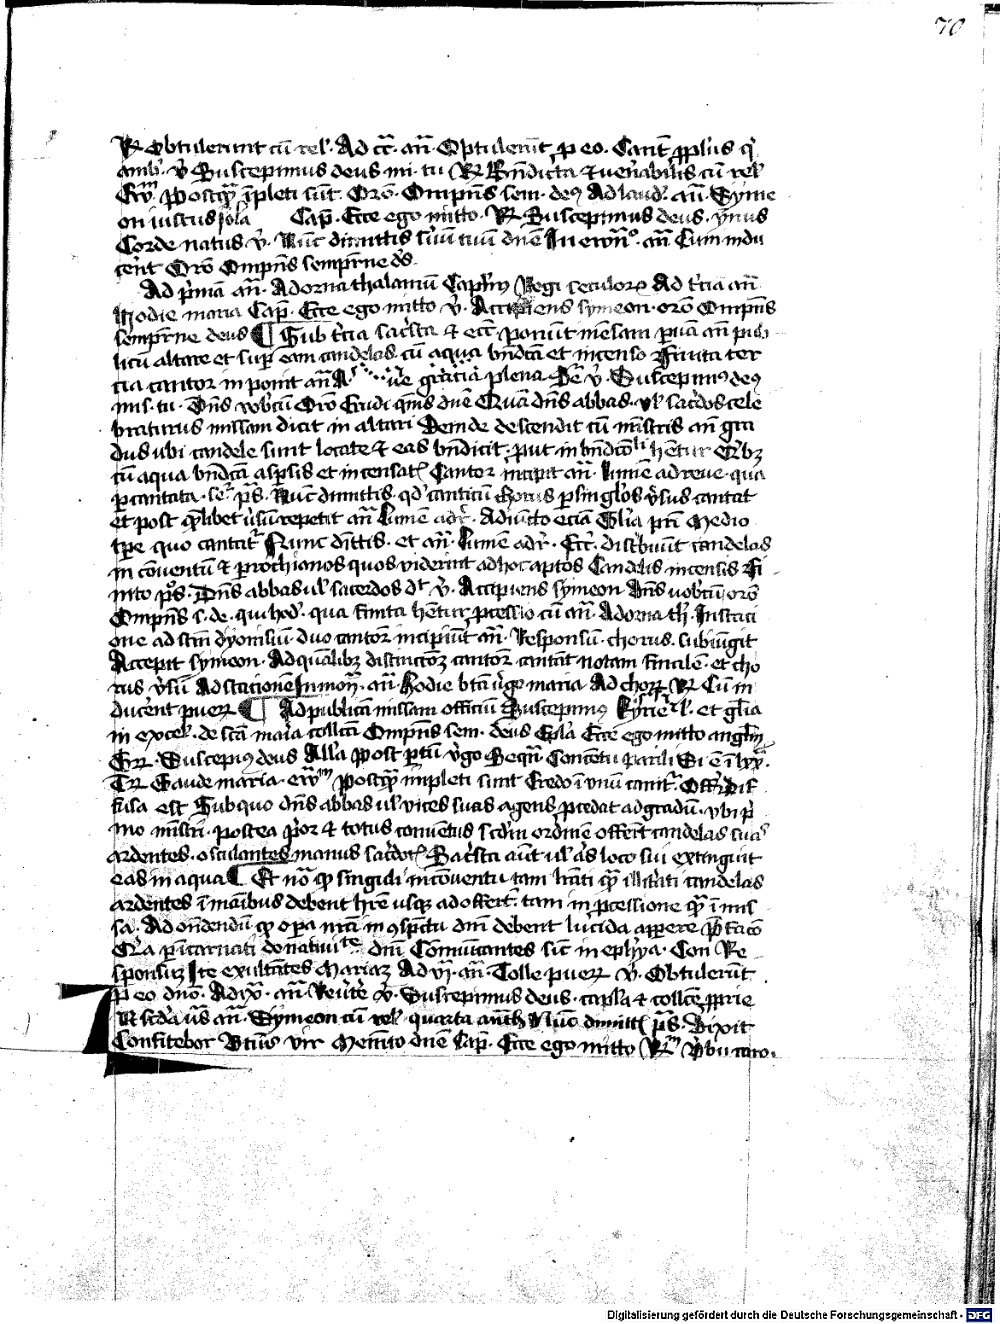 70
R Obtulerunt cū rel'. Ad cc̄. an̄. Optulerūt p eo. Cant̄ pplūs
ambl'. v̄ Suscepimus deus mi. tu R Bn̄dicta & uen̄abilis cū rel'
Postqm̄ īpleti sūt. Orō. Ompn̄s sem. de9 Ad laud'. an̄. Syme
on iustus sola Cap̄. Ecce ego mitto. R Suscepimus deus. ymnus
Corde natus v̄. Nūc dimittis s̄uū tuū dn̄e In ewn̄º. an̄ Cum indu
cer̄nt Orō Ompn̄s semp̄rne ds̄.
Ad p̄mā an̄. Adorna thalamū Regi seculorꝝ Ad t̄cia an̄
Hodie maria Cap̄. Ecce ego mitto v̄. Accipiens symeon. orō Ompn̄s
semp̄rne deus ¶ Sub t̄cia sac̄sta & ponūt mēsam p̄uā an̄ pub
licū altare et sup̄ eam candelas cū aqua bn̄dc̄a et incenso Finita ter
cia cantor in ponit an̄ gr̄acia plena. v̄. Suscepim9 de9
mis. tu. Dn̄s vobc̄ū Orō Erudi qm̄s dn̄e Quā dn̄s abbas. ul' sac̄dos cele
braturus missam dicit in altari Deinde descendit cū mīstris an̄ gra
dus ubi candele sunt locate & eas bn̄dicit. put in bn̄dcōli hētur
cū aqua bn̄dc̄a asp̄sis et incensatꝭ Cantor incipit an̄. Lumē ad reue. qua
p cantata. ps̄. Nūc dimittis. qd' canticū chorus p singl'os v̄sus cantat
et post qlibet v̄sū repetit an̄ Lumē adr̄. Adiūcto eciā Gl'ia pr̄i Medio
tpe quo cantat̄ Nunc dīttis. et an̄. Lumē adr̄. distbuūt candelas
in cōuentū & prochianos quos viderint ad hoc aptos Candelis incensis Fi
nito ps̄. Dn̄s abbas ul' sacerdos dt v̄. Accipiens symeon Dn̄s uobc̄ū orō
Ompn̄s s. de. qui hod'. qua finita hētur pcessio cū an̄. Adorna th. In staci
one ad sc̄m dyonisiū. duo cantor̄ incipiūt an̄. Responsū. chorus. subiūgit
Accepit symeon. Ad qualibꝫ distinctōꝫ cantor̄ cantāt notam finalē. et cho
rus v̄sū Ad stacionē In mōn̄. an̄. Hodie btā v̄go maria Ad chorꝝ R Cū in
ducer̄ent puerꝝ ¶ Ad publicā missam officiū Suscepim9 Kyrie et gl'ia
in excel'. de sc̄a maia collctā Ompn̄s sem. deus Epl'a Ecce ego mitto angl'm
Gr̄. Suscepi9 deus Alla Post ptū v̄go Seqn̄ Concentu parili
Tr̄ Gaude maria. ewm Postqm̄ impleti sunt Credo ī vnū canit̄. Off̄. Dif
fusa est Sub quo dn̄s abbas ul' vices suas agens p̄cedat ad gradū. vbi p̄
mo mīstri. postea p̄or & totus conuentus scdm ordinē offert̄ candelas suas
ardentes. osculantes manus sac̄dotꝭ Sac̄sta aūt ul' al's loco sui extinguit
eas in aqua ¶ Et nōa qp singuli in cōuentu tam īcati qm̄ illitati candelas
ardentes ī manibus debent hr̄e usqꝫ ad offert̄. tam in pcessione qm̄ ī mis
sa. Ad ondendū qp opa nr̄a in 9spc̄tu dm̄ debent lucida apper̄e
p icarnati de natiuite dm̄ Comūicantes sūt in ephya. Con Re
sponsuꝫ Ite exultates Mariaꝫ Ad vj. an̄. Tolle puerꝝ v̄. Obtuler̄ūt
p eo dn̄o. Ad ix̄. an̄. Reūt̄e v̄. Suscepimus deus. capl'a & collcē pprie
R scd'a us̄ an̄. Symeon cū rel' quarta anth Nūc dimittꝭ ps̄. Dixit
Confitebor Btūs vir Memēto dn̄e Cap̄. Ecce ego mitto R v̄bū caro.
Digitalisierung gefördert durch die Deutsche Forschungsgemeinschaft - DFG